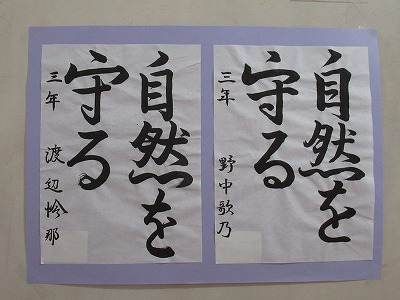 自然を
守る
三年 野中歌乃
自然を
守る
三年 渡辺怜那